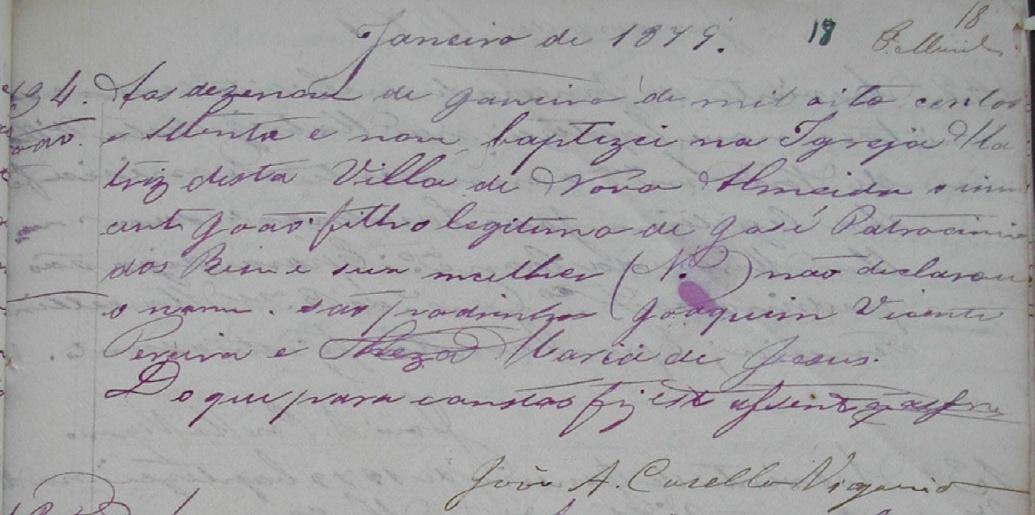 Janeiro de 1879.
18
18
134. Aos dezenove de Janeiro de mil oito centos
João. e setenta e nove, baptizei na Igreja Ma
triz desta Villa de Nova Almeida o inno
cente João filho legitimo de José Patrocinio
dos Reis e sua mulher (N. ) não declarou
o nome. São padrinhos Joaquim Vicente
Pereira e Thereza Maria de Jesus.
Do que para constar fiz este assento q assigno
João A. Casello Vigario